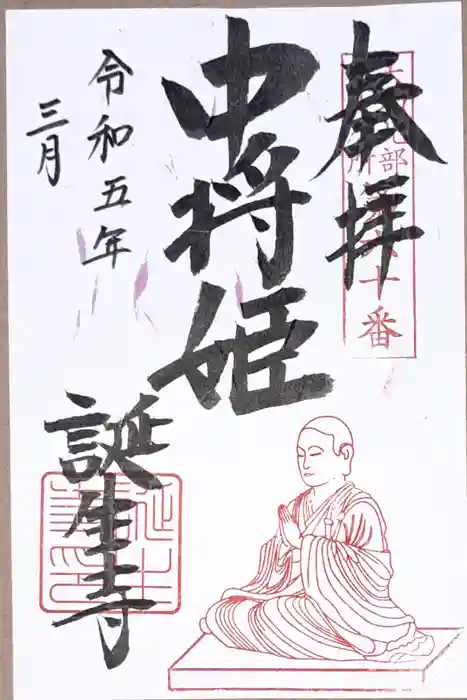 奉拝
中将姫
誕生寺
令和五年
三月
十番